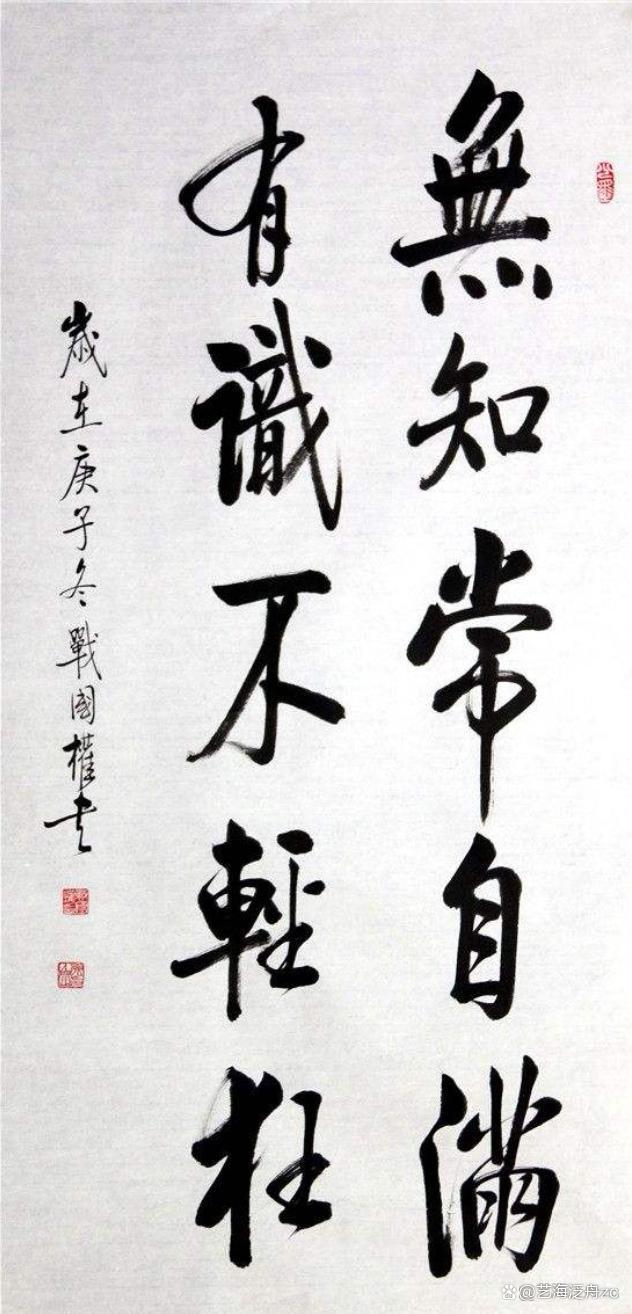 無知常自滿
有識不輕狂
歲在庚子冬戰國權书
@艺海泛舟zc